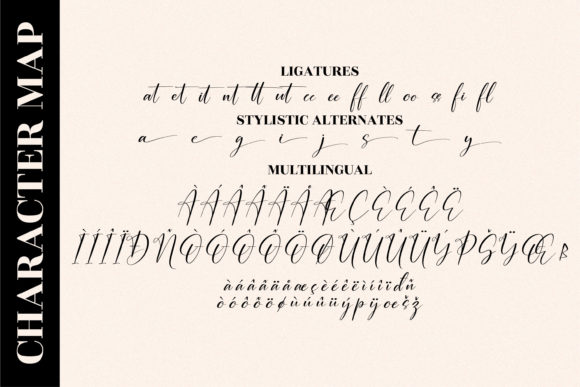 CHARACTER MAP
LIGATURES
at et it nt tt ut cc ee ff ll oo ss fi fl
STYLISTIC ALTERNATES
a e g i j s t y
MULTILINGUAL
ÀÁÂÃÄÅÆÇÈÉÊË
ÌÍÎÏÐÑÒÓÔÕÖØÙÚÛÜÝÞŠŸŒß
àáâãäåæçèéêëìíîïðñ
òóôõöøùúûüýþÿœšž